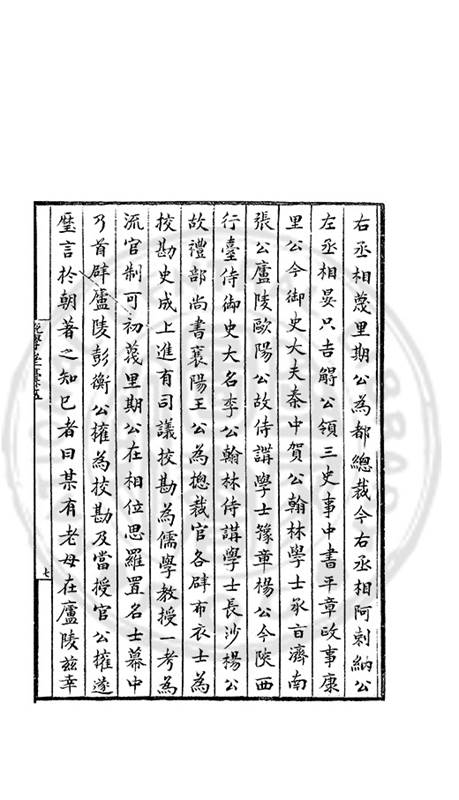 右丞相蔑里期公為都總裁今右丞相阿剌納公
左丞相晏只吉𦧧公領三史事中書平章政事康
里公今御史大夫秦中賀公翰林學士承㫖濟南
張公廬陵歐陽公故侍講學士豫章楊公今陜西
行臺侍御史大名李公翰林侍講學士長沙楊公
故禮部尚書襄陽王公為揔裁官各辟布衣士為
校勘史成上進有司議校勘為儒學教授一考為
流官制可初蔑里期公在相位思羅置名士幕中
乃首辟廬陵彭衡公擁為校勘及當授官公擁遂
歷言於朝著之知己者曰某有老母在廬陵兹幸
七